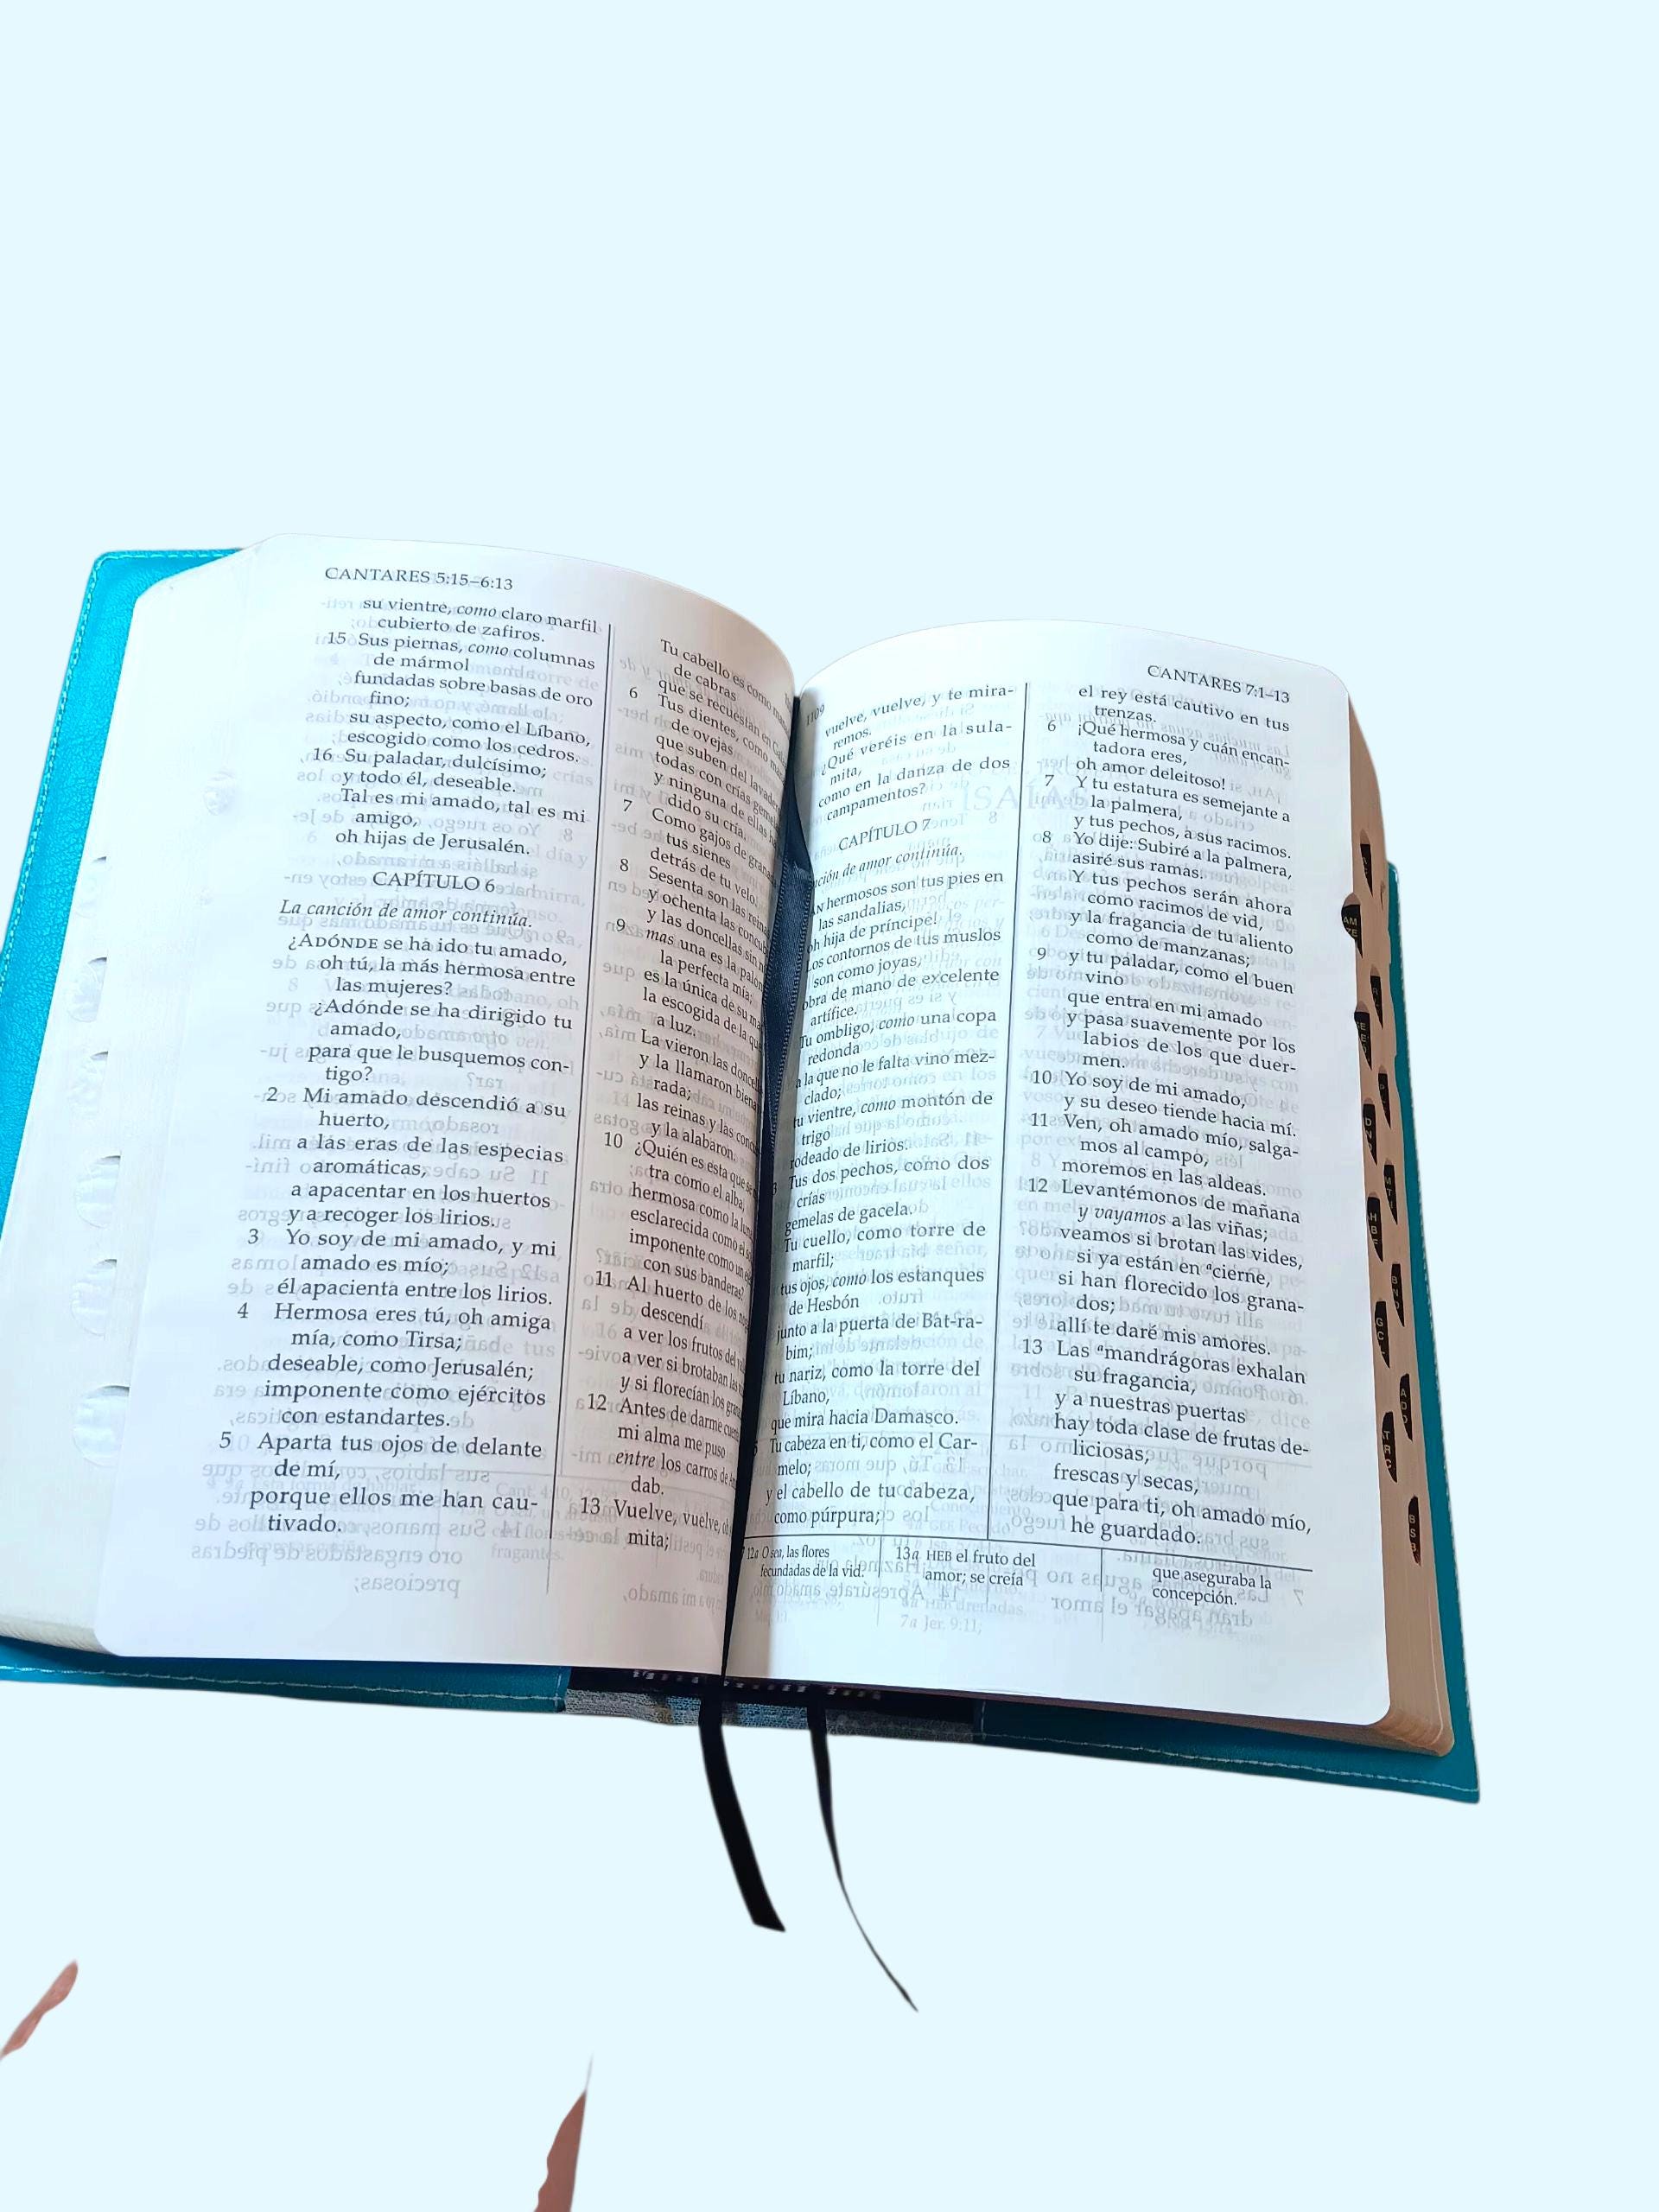 CANTARES 5:15–6:13
su vientre, como claro marfil
cubierto de zafiros.
15 Sus piernas, como columnas
de mármol
fundadas sobre basas de oro
fino;
su aspecto, como el Líbano,
escogido como los cedros.
16 Su paladar, dulcísimo;
y todo él, deseable.
Tal es mi amado, tal es mi
amigo,
oh hijas de Jerusalén.
CAPÍTULO 6
La canción de amor continúa.
¿ADÓNDE se ha ido tu amado,
oh tú, la más hermosa entre
las mujeres?
¿Adónde se ha dirigido tu
amado,
para que le busquemos con-
tigo?
2 Mi amado descendió a su
huerto,
a las eras de las especias
aromáticas,
a apacentar en los huertos
y a recoger los lirios.
3 Yo soy de mi amado, y mi
amado es mío;
él apacienta entre los lirios.
4 Hermosa eres tú, oh amiga
mía, como Tirsa;
deseable, como Jerusalén;
imponente como ejércitos
con estandartes.
5 Aparta tus ojos de delante
de mí,
porque ellos me han cau-
tivado.
Tu cabello es como
de cabras
que se recuestan en
6 Tus dientes, como
de ovejas
que suben del
todas con crías
y ninguna de ellas
dido su cría.
7 Como gajos de
tus sienes
detrás de tu velo.
8 Sesenta son las
y ochenta las
y las doncellas sin
9 mas una es la
la perfecta mía;
es la única de su
la escogida de la que
a luz.
La vieron las
y la llamaron
rada;
las reinas y las
y la alabaron.
10 ¿Quién es esta que se
tra como el alba,
hermosa como la
esclarecida como el
imponente como
con sus banderas?
11 Al huerto de los
descendí
a ver los frutos del
a ver si brotaban las
y si florecían los
12 Antes de darme
mi alma me puso
entre los carros de
dab.
13 Vuelve, vuelve,
mita;
1109
CANTARES 7:1–13
vuelve, vuelve, y te mira-
remos.
¿Qué veréis en la sula-
mita,
como en la danza de dos
campamentos?
CAPÍTULO 7
de amor continúa.
hermosos son tus pies en
las sandalias,
oh hija de príncipe!
Los contornos de tus muslos
son como joyas,
obra de mano de excelente
artífice.
Tu ombligo, como una copa
redonda
a la que no le falta vino mez-
clado;
tu vientre, como montón de
trigo
rodeado de lirios.
Tus dos pechos, como dos
crías
gemelas de gacela.
Tu cuello, como torre de
marfil;
tus ojos, como los estanques
de Hesbón
junto a la puerta de Bat-ra-
bim;
tu nariz, como la torre del
Líbano,
que mira hacia Damasco.
Tu cabeza en ti, como el Car-
melo;
y el cabello de tu cabeza,
como púrpura;
el rey está cautivo en tus
trenzas.
6 ¡Qué hermosa y cuán encan-
tadora eres,
oh amor deleitoso!
7 Y tu estatura es semejante a
la palmera,
y tus pechos, a sus racimos.
8 Yo dije: Subiré a la palmera,
asiré sus ramas.
Y tus pechos serán ahora
como racimos de vid,
y la fragancia de tu aliento
como de manzanas;
9 y tu paladar, como el buen
vino
que entra en mi amado
y pasa suavemente por los
labios de los que duer-
men.
10 Yo soy de mi amado,
y su deseo tiende hacia mí.
11 Ven, oh amado mío, salga-
mos al campo,
moremos en las aldeas.
12 Levantémonos de mañana
y vayamos a las viñas;
veamos si brotan las vides,
si ya están en ᵃcierne,
si han florecido los grana-
dos;
allí te daré mis amores.
13 Las ᵃmandrágoras exhalan
su fragancia,
y a nuestras puertas
hay toda clase de frutas de-
liciosas,
frescas y secas,
que para ti, oh amado mío,
he guardado.
12a O sea, las flores
fecundadas de la vid.
13a HEB el fruto del
amor; se creía
que aseguraba la
concepción.